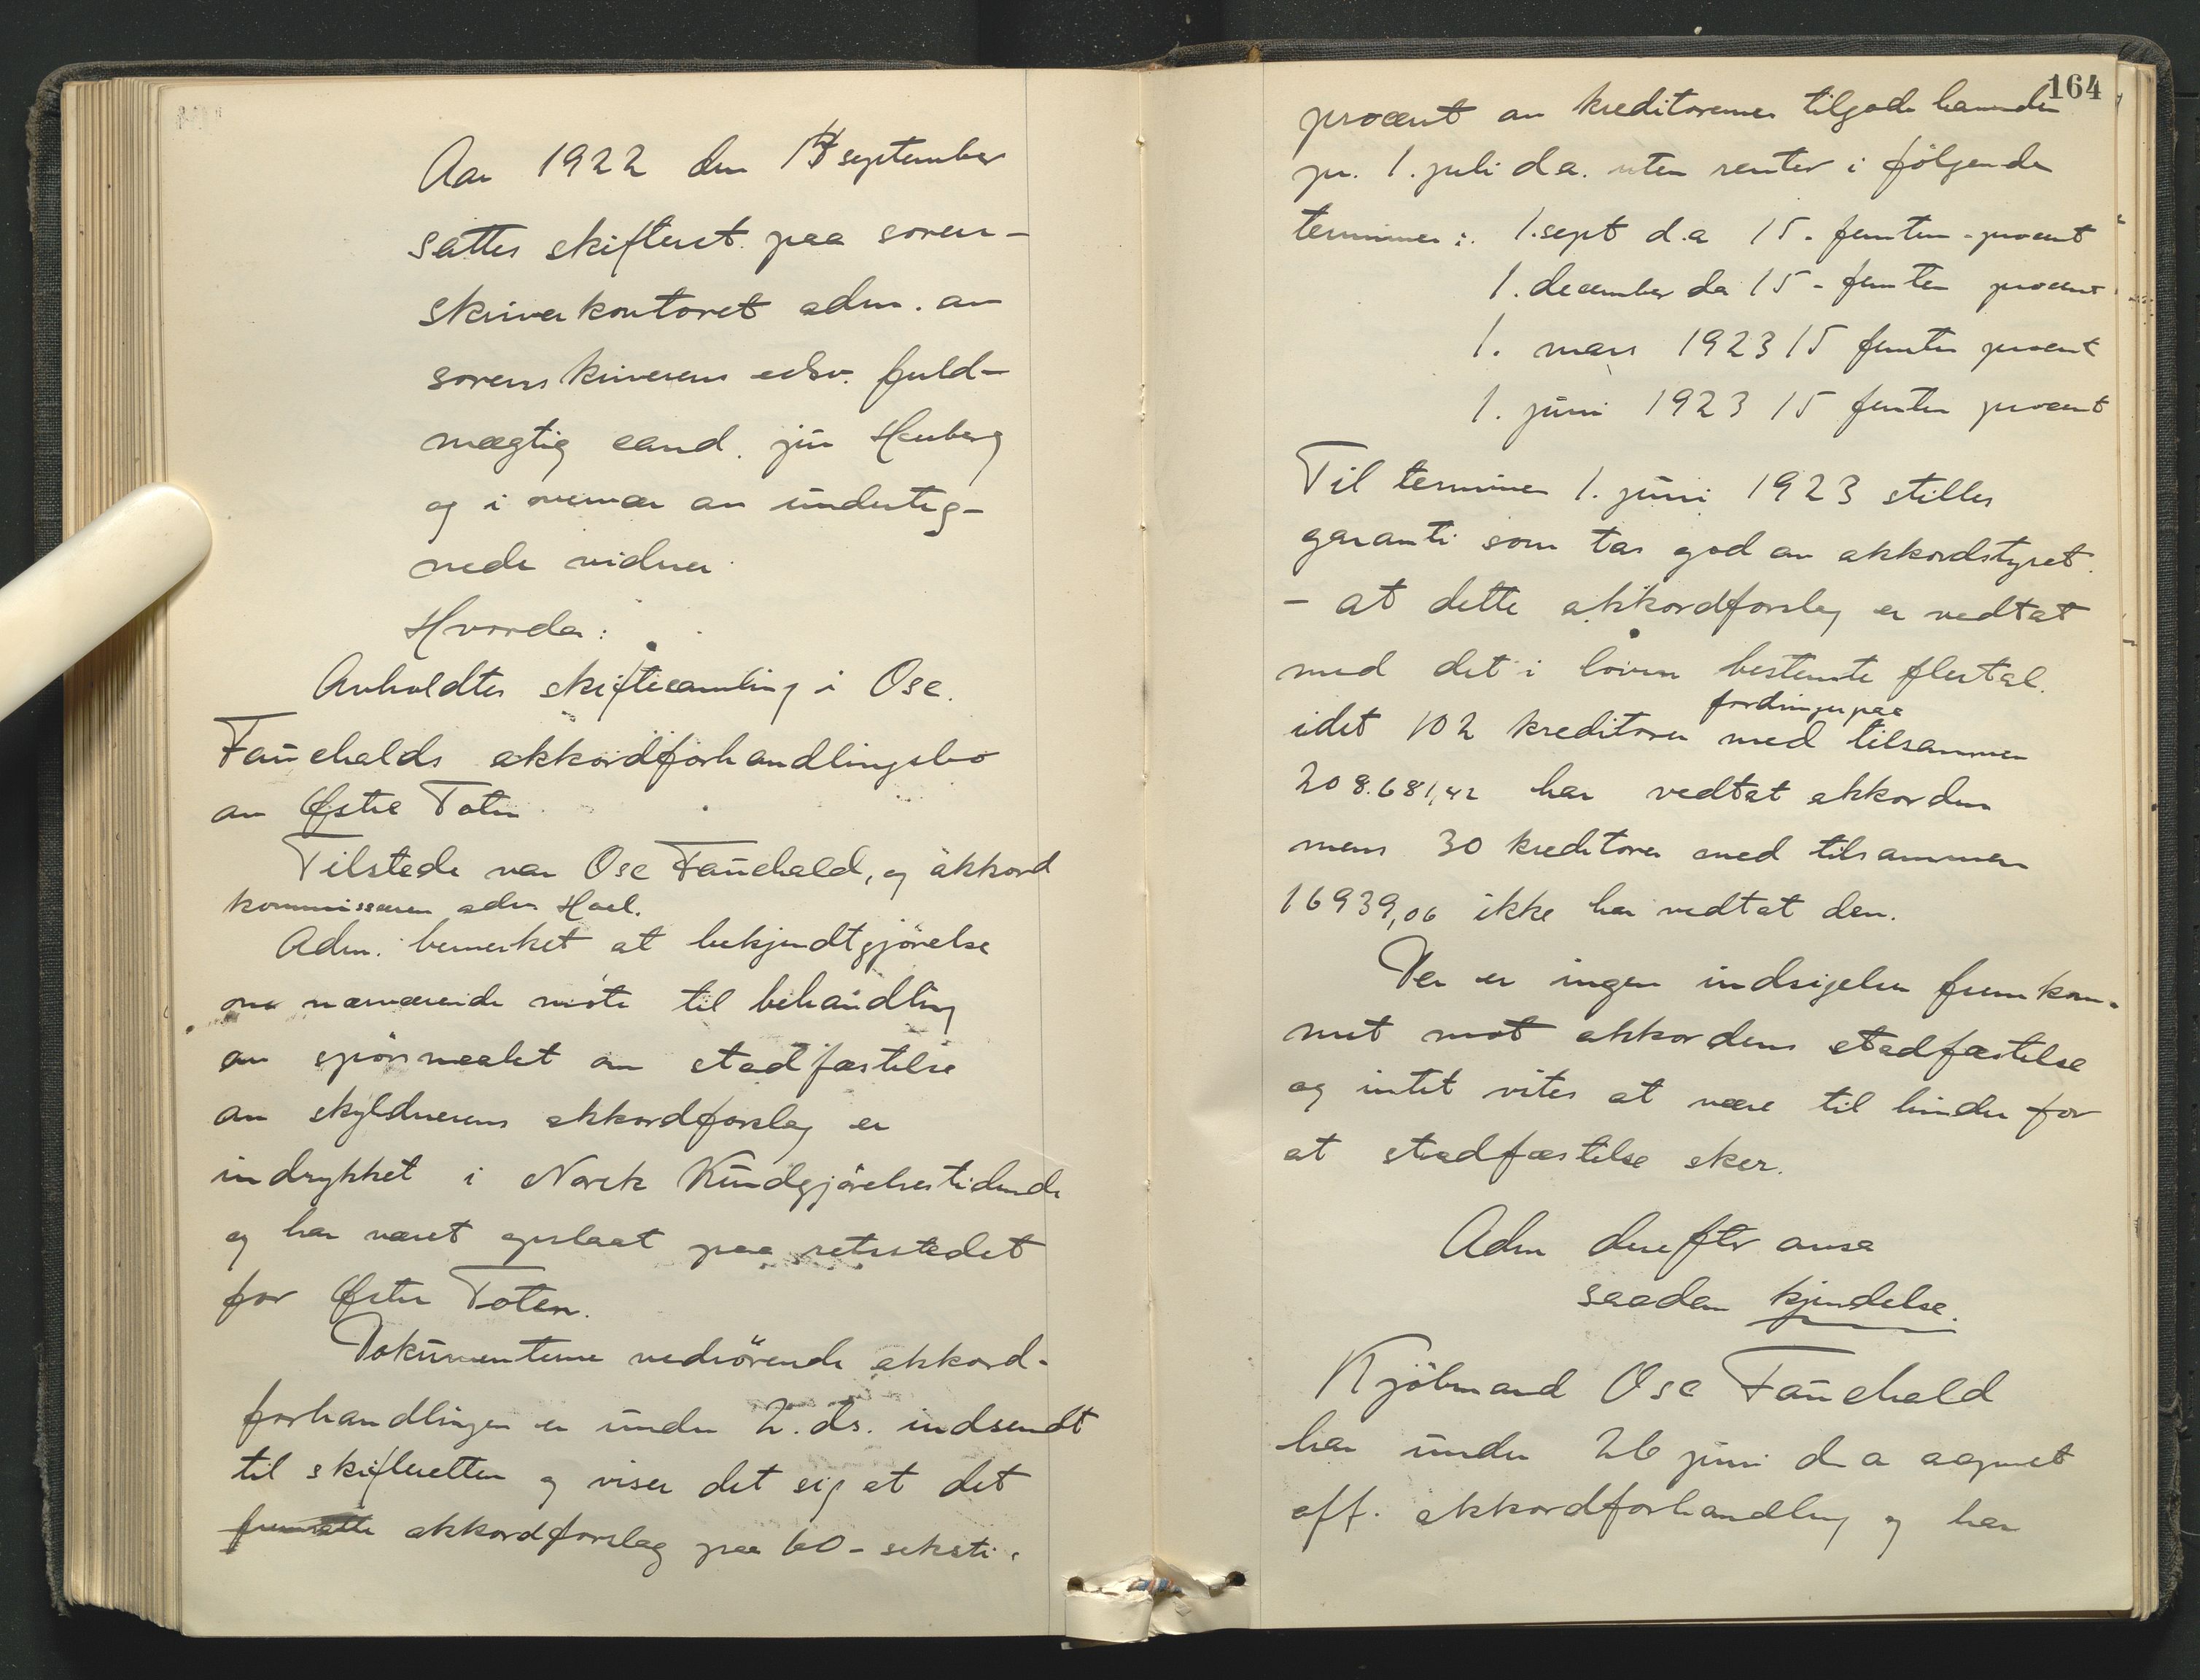 Aar 1922 den 14 september
sattes skifteret paa soren-
skriverkontoret adm. av
sorenskriverens edsv. fuld-
mægtig cand. jur Hauberg
og i nærvær av underteg-
nede vidner
Hvorda:
Avholdtes skiftesamling i Ose
Fauchalds akkordforhandlingsbo
av Østre Toten
Tilstede var Ose Fauchald, og akkord
kommissæren adv. Hoel.
Adm. bemerket at bekjendtgjörelse
om nærværende möte til behandling
av spörsmaalet om stadfæstelse
av skyldnerens akkordforslag er
indrykket i Norsk Kundgjörelsestidende
og har været opslaat paa retsstedet
for Østre Toten.
Dokumenterne vedrörende akkord-
forhandlingen er under 2. ds. indsendt
til skifteretten og viser det sig at det
fremsatte akkordforslag paa 60 - seksti -
164
procent av kreditorernes tilgodehavender
pr. 1. juli d.a. uten renter i fölgende
terminer: 1. sept d.a 15 - femten - procent
1. december da 15 - femten procent
1. mars 1923 15 femten procent
1. juni 1923 15 femten procent
Til terminen 1. juni 1923 stilles
garanti som tas god av akkordstyret.
- at dette akkordforslag er vedtat
med det i loven bestemte flertal.
fordringer paa
idet 102 kreditorer med tilsammen
208.681,42 har vedtat akkorden
mens 30 kreditorer med tilsammen
16939,06 ikke har vedtat den.
Der er ingen indsigelser fremkom-
met mot akkordens stadfæstelse
og intet vites at være til hinder for
at stadfæstelse sker.
Adm derefter avsa
saadan kjendelse.
Kjöbmand Ose Fauchald
har under 26 juni d a aapnet
off. akkordforhandling og har